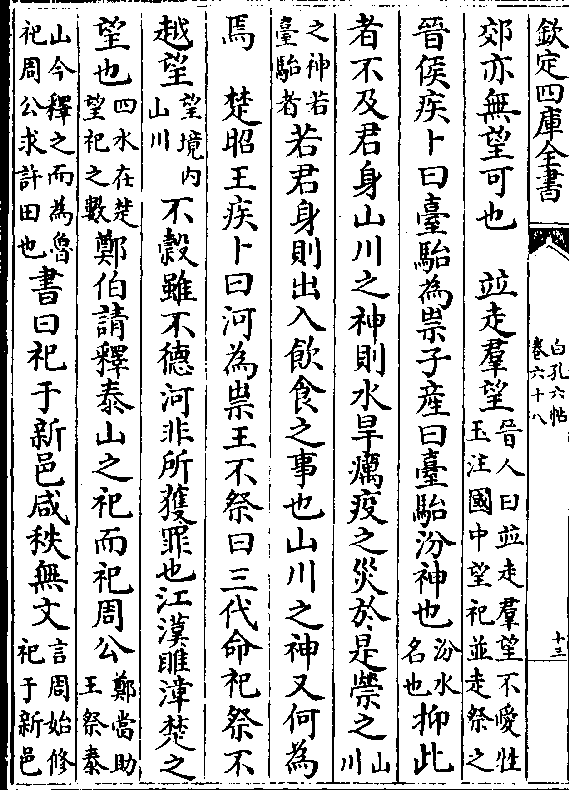 欽定四庫全書
白孔六帖
卷六十八
十三
郊亦無望可也　並走羣望晉人曰並走羣望不愛牲
玉注國中望祀並走祭之
晉侯疾卜曰臺駘為祟子産曰臺駘汾神也汾水
名也抑此
者不及君身山川之神則水旱癘疫之災於是禜之山
川
之神若
臺駘者若君身則出入飲食之事也山川之神又何為
焉　楚昭王疾卜曰河為祟王不祭曰三代命祀祭不
越望望境内
山川不穀雖不德河非所獲罪也江漢睢漳楚之
望也四水在楚
望祀之數鄭伯請釋泰山之祀而祀周公鄭當助
王祭泰
山今釋之而為魯
祀周公求許田也書曰祀于新邑咸秩無文言周始修
祀于新邑